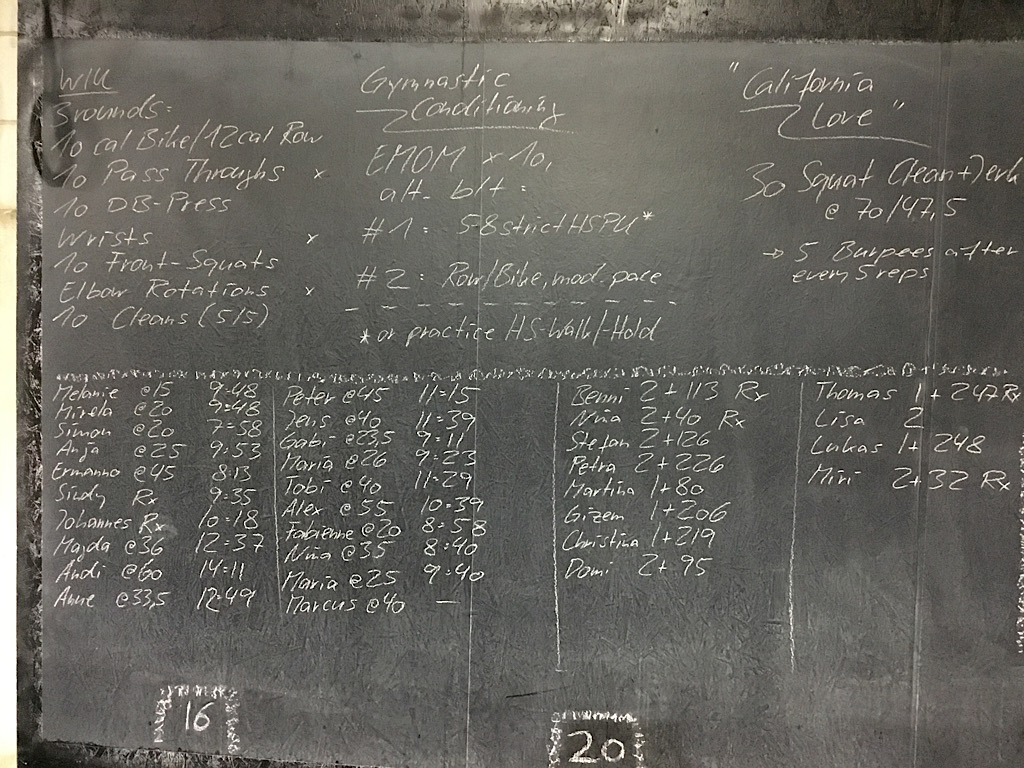 WU
3 rounds:
10 cal Bike/12cal Row
10 Pass Throughs x
10 DB-Press
Wrists x
10 Front-Squats
Elbow Rotations x
10 Cleans (5/5)
Gymnastic
Conditioning
EMOM x 10,
alt. bt:
#1: 5-8 strict HSPU*
#2: Row/Bike, mod. pace
* or practice HS-Walk/Hold
"California
Love"
30 Squat Clean+Jerk
@ 70/47,5
→ 5 Burpees after
every 5 reps
Melanie @15 9:48
Mirela @20 9:48
Simon @20 7:58
Anja @25 9:53
Ermanno @45 8:13
Sindy Rx 9:35
Johannes Rx 10:18
Majda @36 12:37
Andi @60 14:11
Anne @33,5 12:49
Peter @45 11:15
Jens @40 11:39
Gabi @23,5 9:11
Maria @26 9:23
Tobi @40 11:29
Alex @55 10:39
Fabienne @20 8:58
Nina @35 8:40
Maria @25 9:40
Marcus @40 —
Benni 2+113 Rx
Nina 2+40 Rx
Stefan 2+126
Petra 2+226
Martina 1+80
Gizem 1+206
Christina 1+219
Domi 2+95
Thomas 1+247 Rx
Lisa 2
Lukas 1+248
Miri 2+32 Rx
16
20